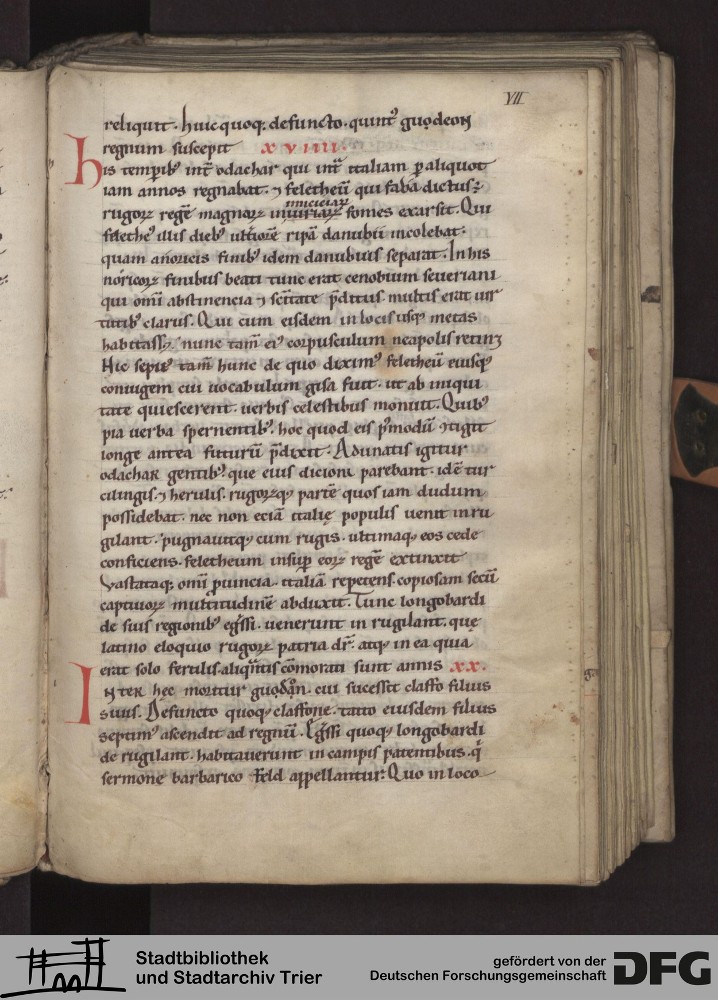 VII
reliquit · huic quoq; defuncto · quint᷒ guodeon
regnum suscepit xviiii.
his temporib᷒ int̄ odachar qui int̄ italiam p̲ aliquot
iam annos regnabat · ⁊ feletheū qui faba dictus ē
rugoꝝ regē magnaꝝ iniuriaꝝ fomes exarsit · Qui
inimiciciaꝝ
felethe᷒ illis dieb᷒ ulteriorē ripā danubii incolebat ·
quam a noricis finib᷒ idem danubius separat · In his
noricoꝝ finibus beati tunc erat cenobium seueriani
qui omi abstinencia ⁊ sc̄itate p̄ditus multis erat uir
tutib᷒ clarus · Qui cum eisdem in locis usq; metas
habitass; nunc tam̄ ei᷒ corpusculum neapolis retin;
Hic sepi᷒ tam̄ hunc de quo dixim᷒ feletheū eiusq;
coniugem cui uocabulum gisa fuit · ut ab iniqui
tate quiescerent · uerbis celestibus monuit · Quib᷒
pia uerba spernentib᷒ · hoc quod eis p᷒modū ↄtigit
longe antea futurū p̄dixit · Adunatis igitur
odachar gentib᷒ que eius dicioni parebant · idē tur
cilingis · ⁊ herulis · rugoꝝq; partē quos iam dudum
possidebat · nec non eciā italię populis uenit in ru
gilant · pugnauitq; cum rugis · ultimaq; eos cede
conficiens · feletheum insup̲ eoꝝ regē extinxit
Vastataq; omi prouincia · italiā repetens · copiosam secū
captiuoꝝ multitudinē abduxit · Tunc longobardi
de suis regionib᷒ egressi · uenerunt in rugilant · que
latino eloquio rugoꝝ patria dr̄ · atq; in ea quia
erat solo fertilis · aliquantis cōmorati sunt annis xx.
Inter hec moritur guodōn · cui successit claffo filius
suus · Defuncto quoq; claffone · tatto eiusdem filius
septim᷒ ascendit ad regnū · Egressi quoq; longobardi
de rugilant · habitauerunt in campis patentibus · qui
sermone barbarico feld appellantur · Quo in loco
Stadtbibliothek
und Stadtarchiv Trier
gefördert von der
Deutschen Forschungsgemeinschaft
DFG